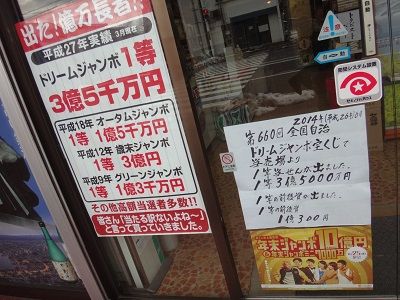 出た!億万長者!!
平成27年実績 3月現在
ドリームジャンボ 1等
3億5千万円
平成18年 オータムジャンボ
1等 1億5千万円
平成12年 歳末ジャンボ
1等 1億円
平成9年 グリーンジャンボ
1等 1億3千万円
その他高額当選者多数!!
皆さん「当たる訳ないよね〜」
と言って買っていきました。
注意
自動
防犯システム設置
2014年(平成26年)
第660回 全国自治
ドリームジャンボ宝くじで
当売場より
1等当せんが出ました。
1等3億5000万円
1等の前後賞が出ました。
1等の前後賞
1億300円
年末ジャンボ10億円